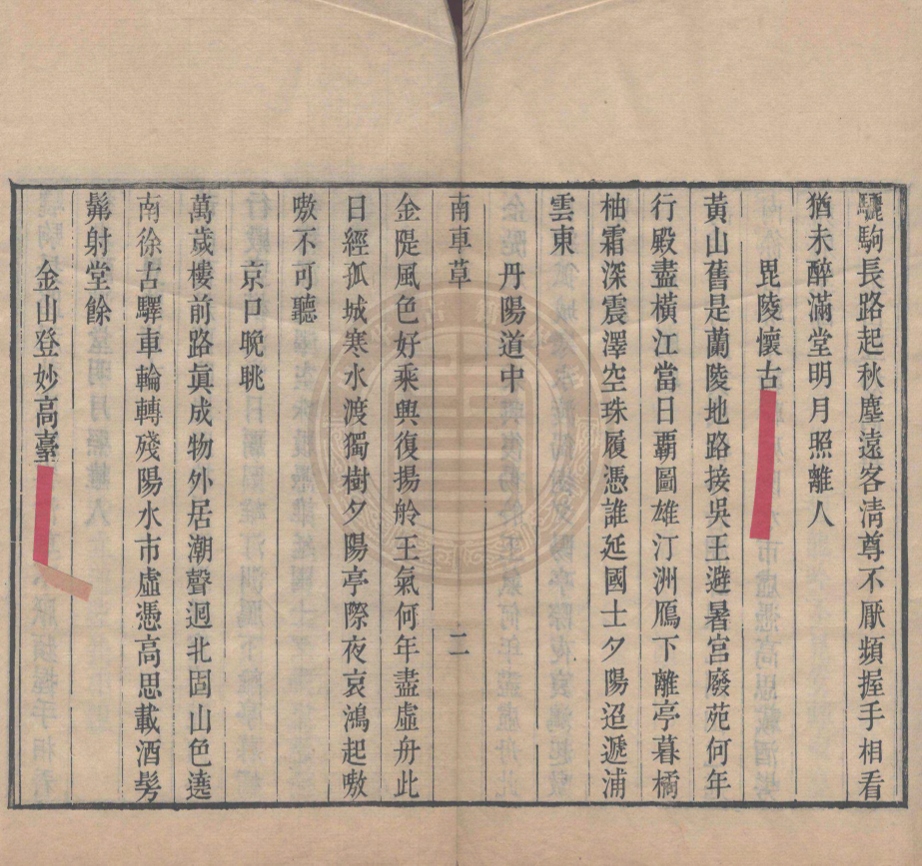 驪駒長路起秋塵遠客清尊不厭頻握手相看
猶未醉滿堂明月照離人
毘陵懷古
黃山舊是蘭陵地路接吳王避暑宮廢苑何年
行殿盡橫江當日覇圖雄汀洲鴈下離亭暮橘
柚霜深震澤空珠履憑誰延國士夕陽迢遞浦
雲東
丹陽道中
南車草 二
金隄風色好乘興復揚舲王氣何年盡虛舟此
日經孤城寒水渡獨樹夕陽亭際夜哀鴻起嗷
嗷不可聽
京口晚眺
萬歲樓前路眞成物外居潮聲迴北固山色遶
南徐古驛車輪轉殘陽水市虛憑高思載酒髣
髴射堂餘
金山登妙高臺